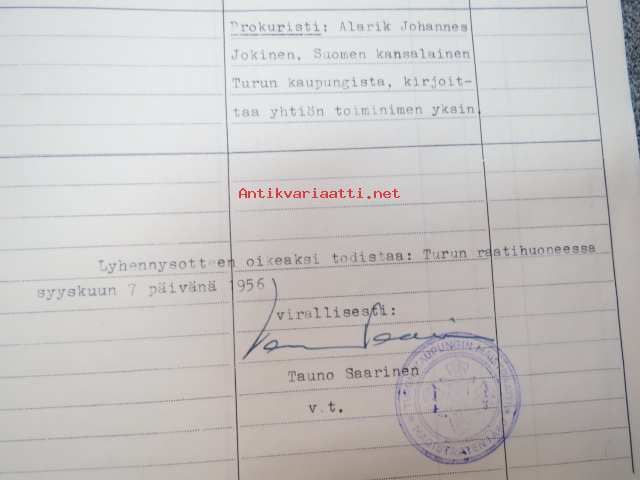 Prokuristi: Alarik Johannes
Jokinen, Suomen kansalainen
Turun kaupungista, kirjoit-
taa yhtiön toiminimen yksin.
Antikvariaatti.net
Lyhennysotteen oikeaksi todistaa: Turun raatihuoneessa
syyskuun 7 päivänä 1956
virallisesti:
Tauno Saarinen
v.t.